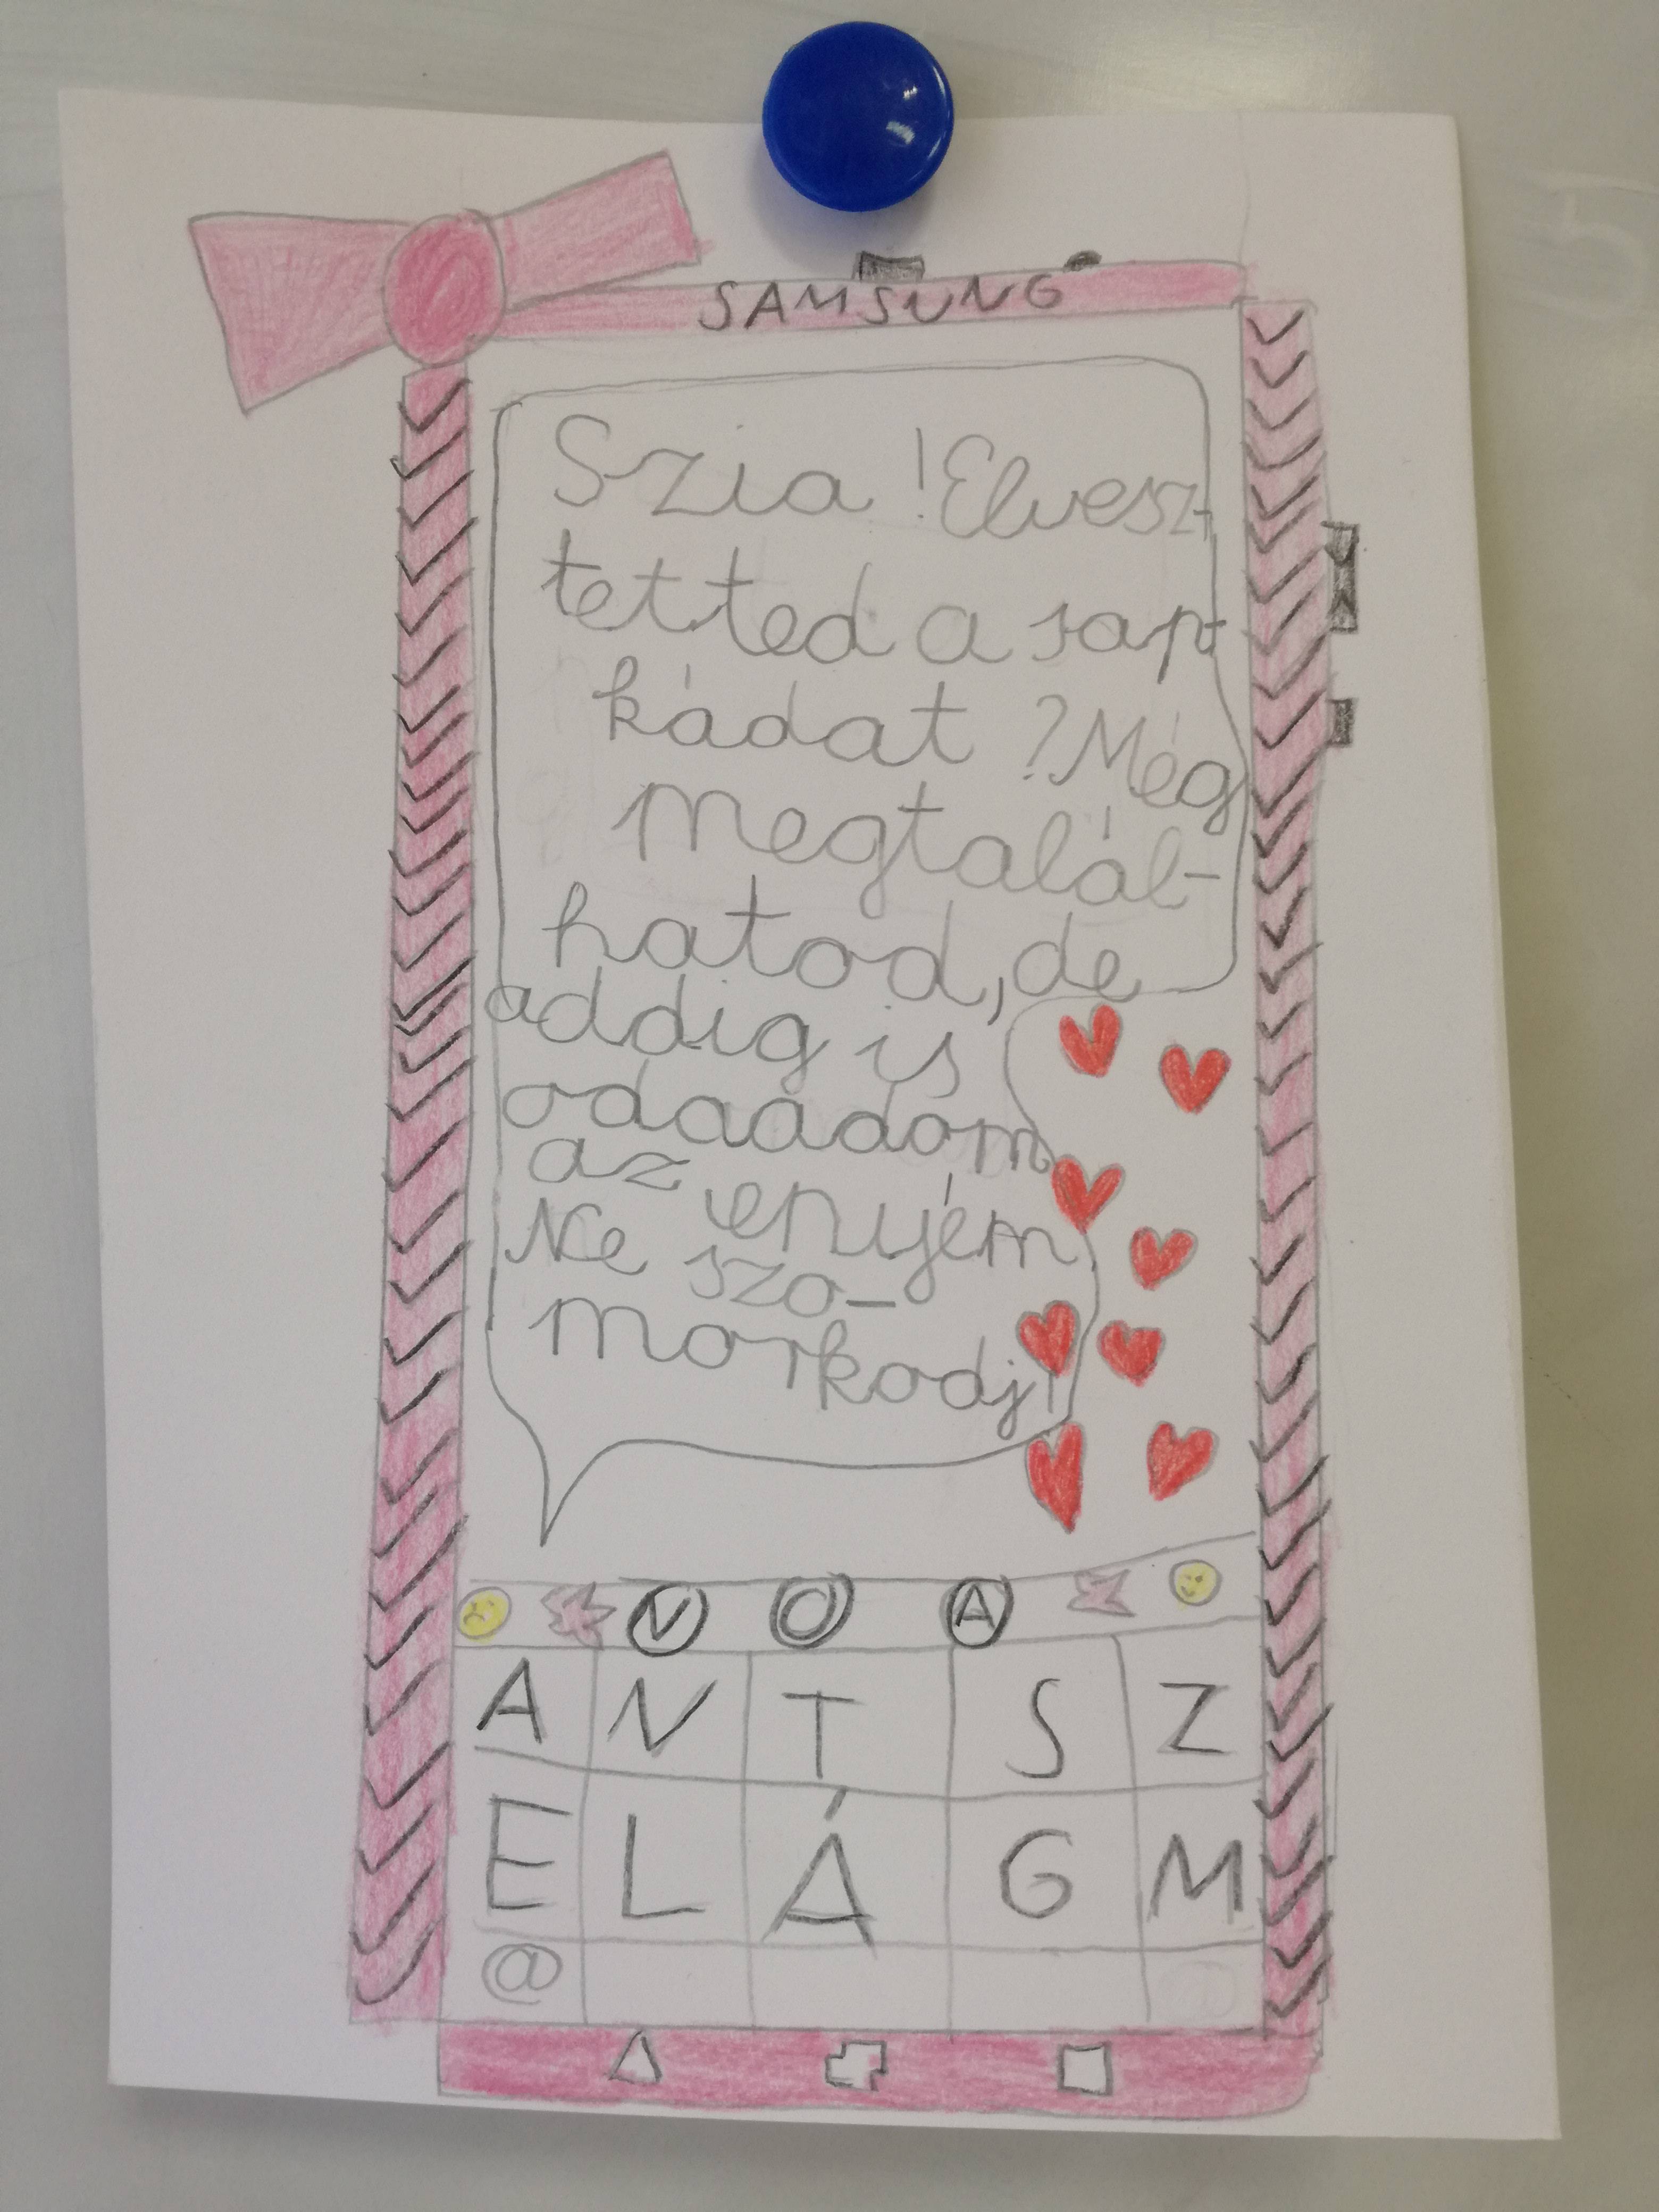 SAMSUNG
Szia! Elvesz-
tetted a sap-
kádat? Még
megtalál-
hatod, de
addig is
odaadom
az enyém
Ne szo-
morkodj!
N O A
A N T S Z
E L Á G M
@